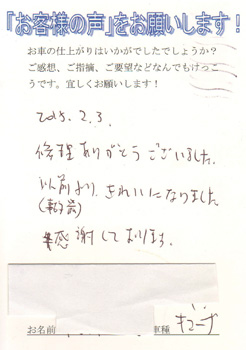 「お客様の声」をお願いします！
お車の仕上がりはいかがでしたでしょうか？
ご感想、ご指摘、ご要望などなんでもけっこ
うです。宜しくお願いします！
2015.2.3.
修理ありがとうございました。
以前より、きれいになりました
感謝しております。
お名前
車種 キューブ